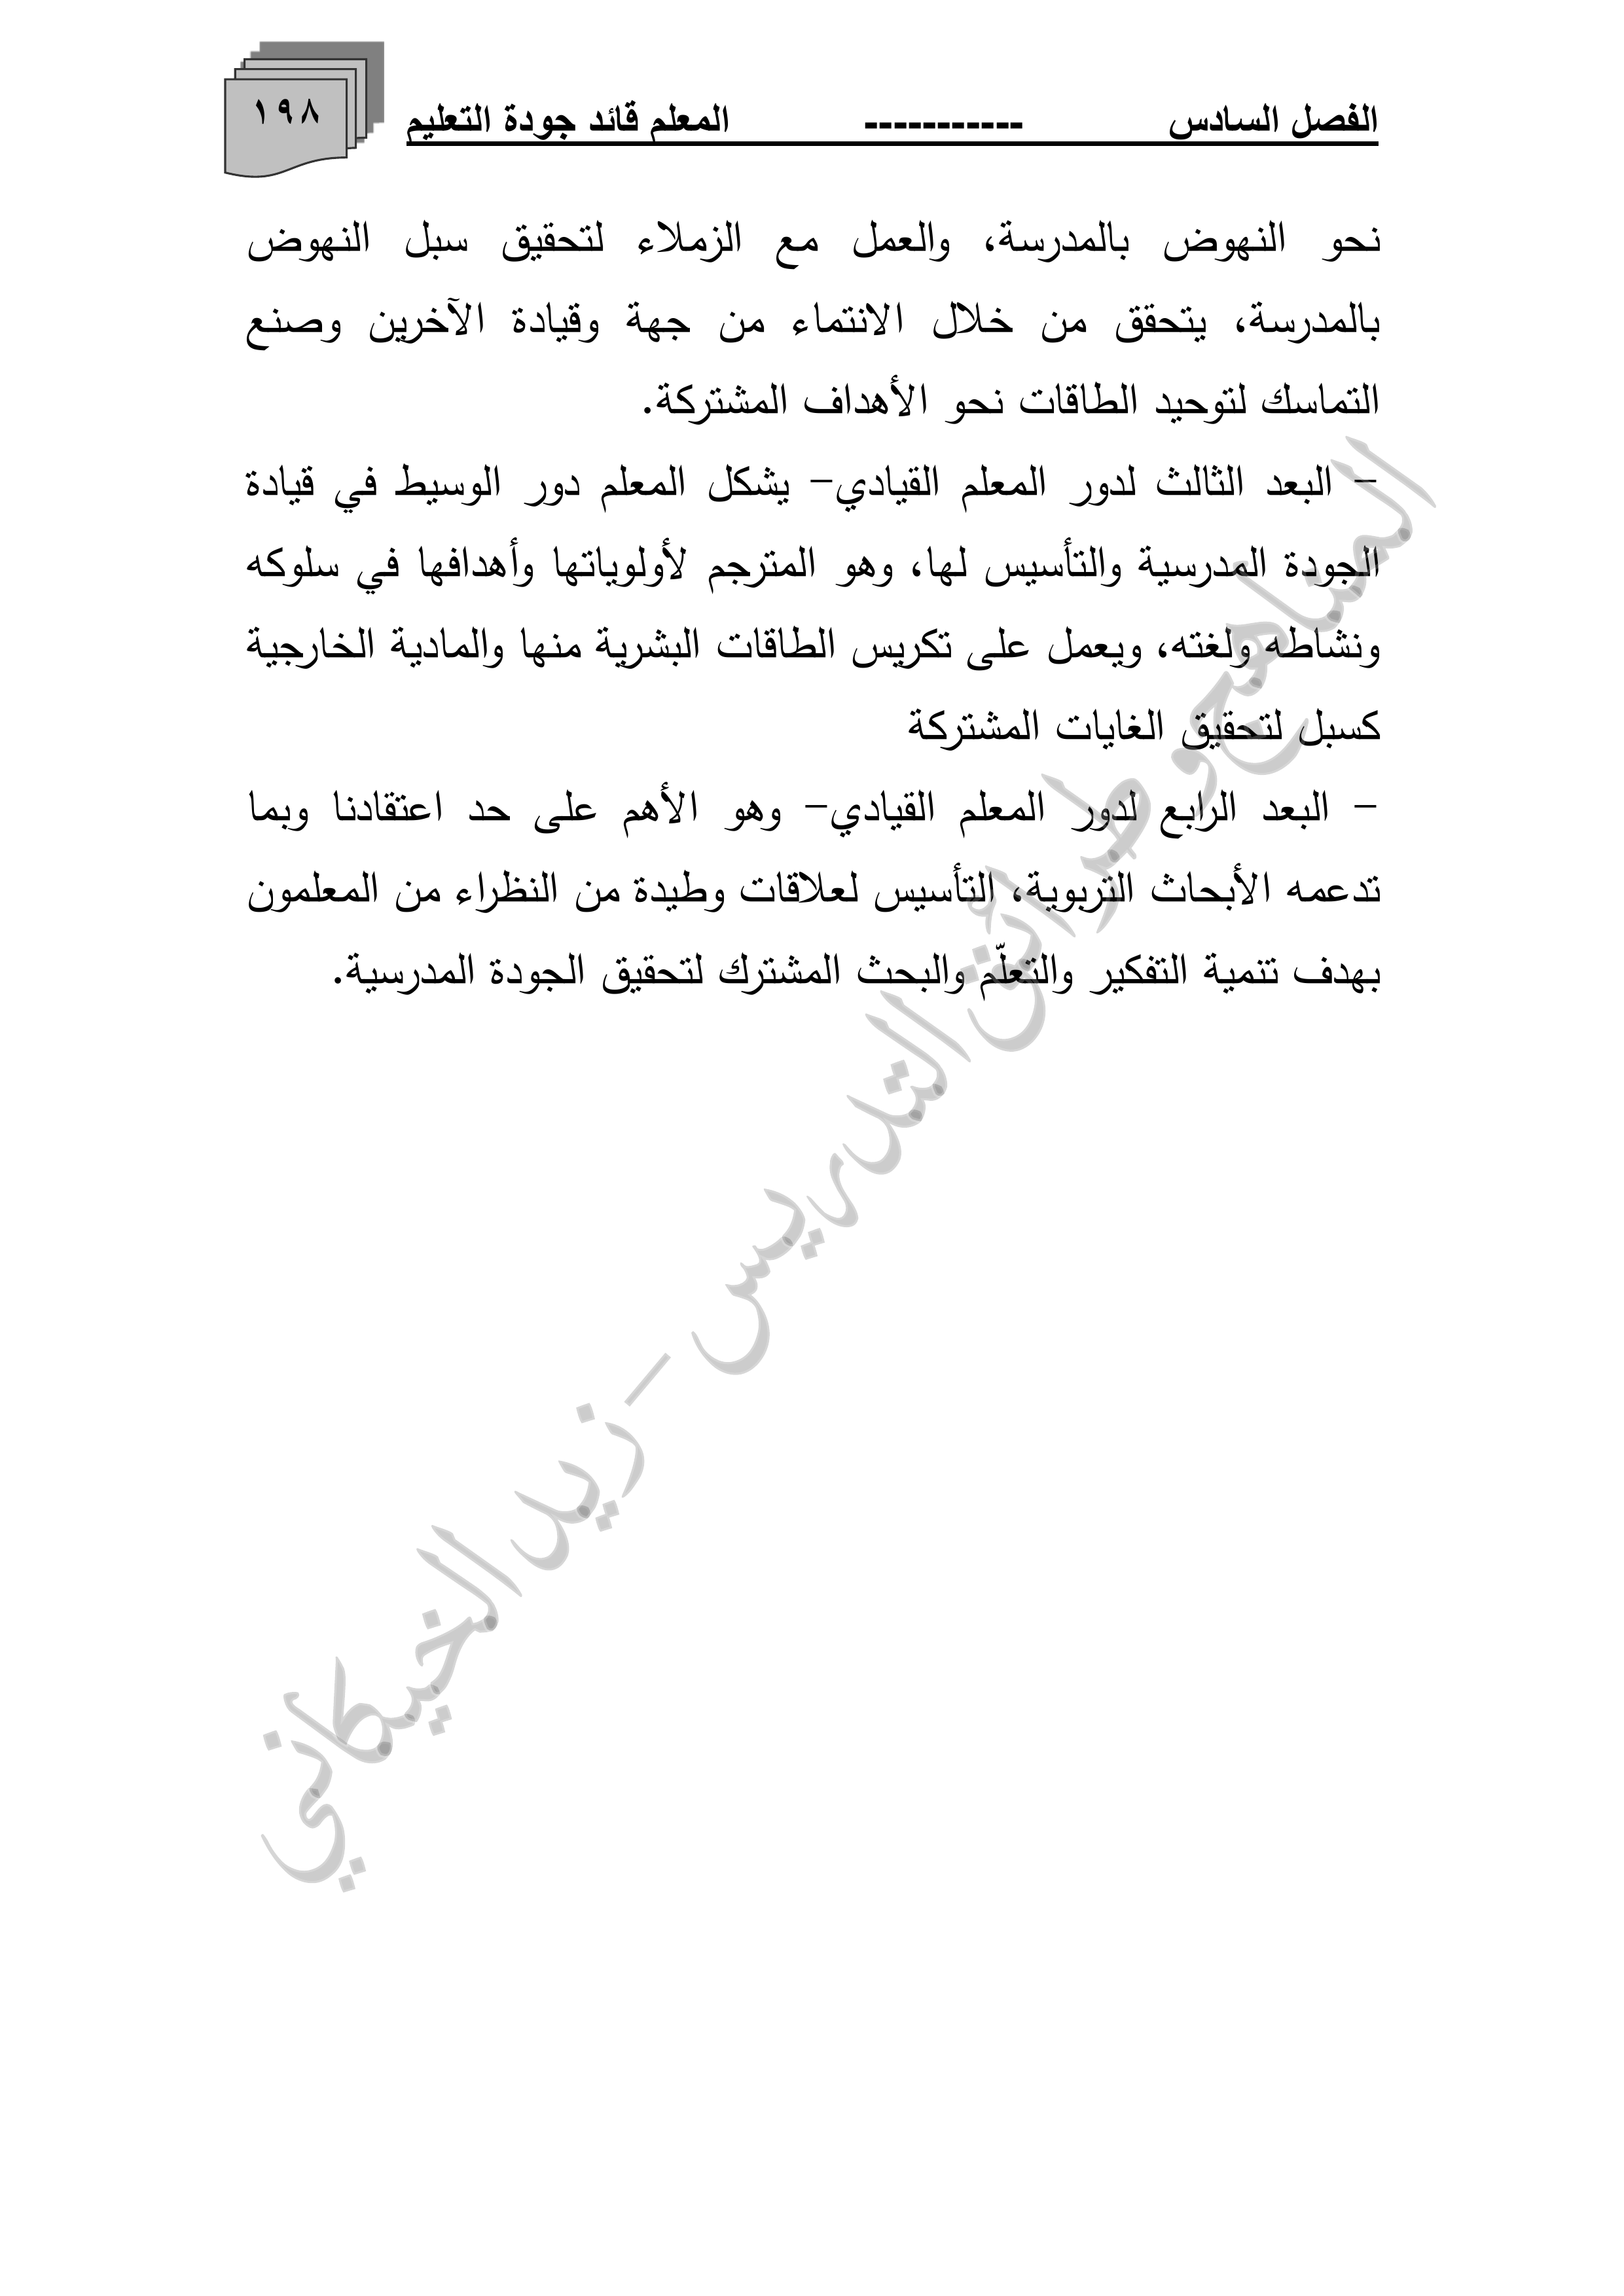 الفصل السادس ----------- المعلم قائد جودة التعليم
١٩٨
نحو النهوض بالمدرسة، والعمل مع الزملاء لتحقيق سبل النهوض
بالمدرسة، يتحقق من خلال الانتماء من جهة وقيادة الآخرين وصنع
التماسك لتوحيد الطاقات نحو الأهداف المشتركة.
– البعد الثالث لدور المعلم القيادي– يشكل المعلم دور الوسيط في قيادة
الجودة المدرسية والتأسيس لها، وهو المترجم لأولوياتها وأهدافها في سلوكه
ونشاطه ولغته، ويعمل على تكريس الطاقات البشرية منها والمادية الخارجية
كسبل لتحقيق الغايات المشتركة
– البعد الرابع لدور المعلم القيادي– وهو الأهم على حد اعتقادنا وبما
تدعمه الأبحاث التربوية، التأسيس لعلاقات وطيدة من النظراء من المعلمون
بهدف تنمية التفكير والتعلّم والبحث المشترك لتحقيق الجودة المدرسية.
المناهج وطرائق التدريس - زيد الخيكاني